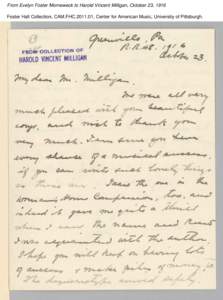 From Evelyn Foster Morneweck to Harold Vincent Milligan, October 23, 1916
Foster Hall Collection, CAM.FHC.2011.01, Center for American Music, University of Pittsburgh.
FROM COLLECTION OF
HAROLD VINCENT MILLIGAN
Greenville, Pa
October 23.
My dear Mr. Milligan.
We were all very
much pleased with your beautiful
songs, and wish to thank you very
much. I am sure you have
every chance of a musical success,
if you can write such lovely things
as those. I saw the one in the
Woman's Home Companion, too, and
it gave me quite a
when I saw the name and knew
I was acquainted with the author.
I hope you will keep on having lots
of success & make piles of money,